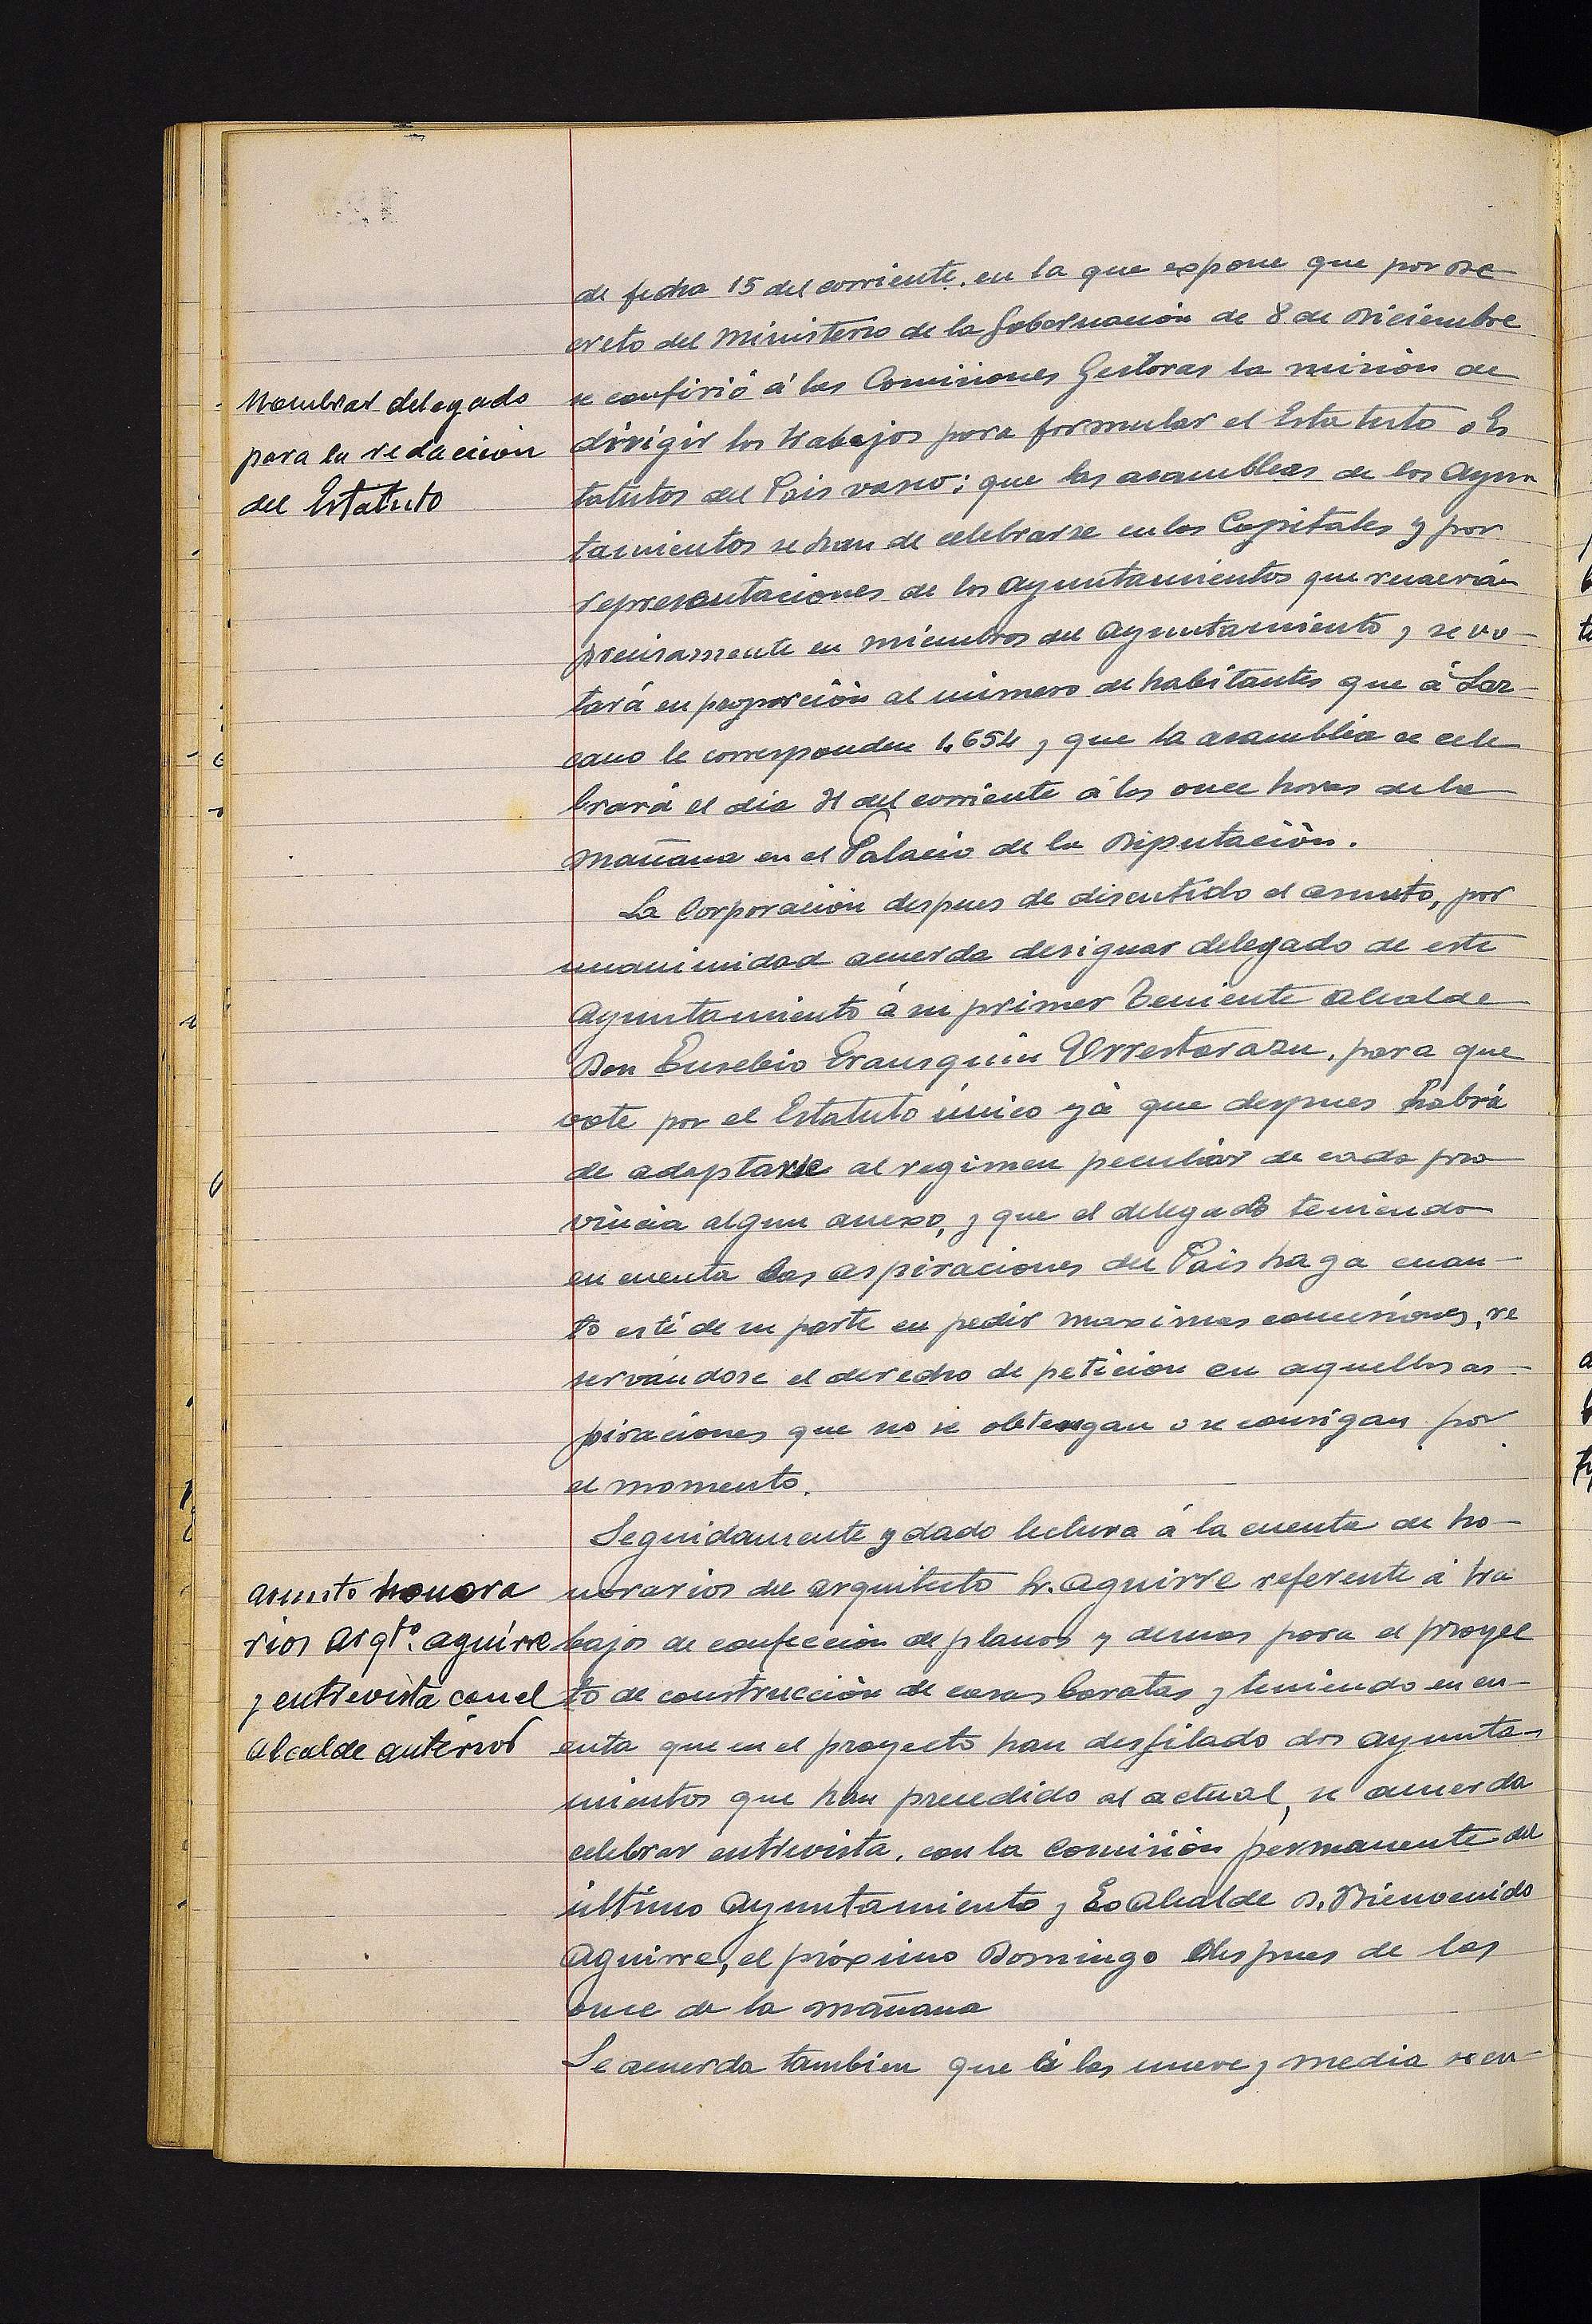 de fecha 15 del corriente, en la que expone que por De
creto del Ministerio de la Gobernación de 8 de Diciembre
se confirió á las Comisiones Gestoras la misión de
dirigir los trabajos para formular el Estatuto o Es
tatutos del Pais vasco; que las asambleas de los Ayun
tamientos se han de celebrarse en las Capitales y por
representaciones de los Ayuntamientos que recaerán
precisamente en miembros del Ayuntamiento y se vo-
tará en proporción al número de habitantes que á Laz-
cano le corresponden 1.654 y que la asamblea se cele
brará el dia 31 del corriente á las once horas de la
mañana en el Palacio de la Diputación.
Nombrar delegado
para la redacción
del Estatuto
La Corporación despues de discutido el asunto, por
unanimidad acuerda designar delegado de este
Ayuntamiento á su primer Teniente Alcalde
Don Eusebio Erausquin Urrestarazu, para que
vote por el Estatuto único yá que despues habrá
de adaptarse al regimen peculiar de cada pro
vincia algun anexo, y que el delegado teniendo
en cuenta las aspiraciones del Pais haga cuan-
to esté de su parte en pedir maximas concesiones, re
servandose el derecho de petición en aquellas as-
piraciones que no se obtengan o se consigan por
el momento.
Seguidamente y dado lectura á la cuenta de ho-
norarios del arquitecto Sr. Aguirre referente á tra
bajos de confección de planos y demas para el proyec
to de construcción de casas baratas y teniendo en cu-
enta que en el proyecto han desfilado dos ayunta-
mientos que han precedido al actual, se acuerda
celebrar entrevista, con la Comisión permanente del
último Ayuntamiento y Ex Alcalde D. Bienvenido
Aguirre, el próximo Domingo despues de las
once de la mañana
Asunto honora
rios Arqto. Aguirre
y entrevista con el
Alcalde anterior
Se acuerda tambien que á las nueve y media se en-